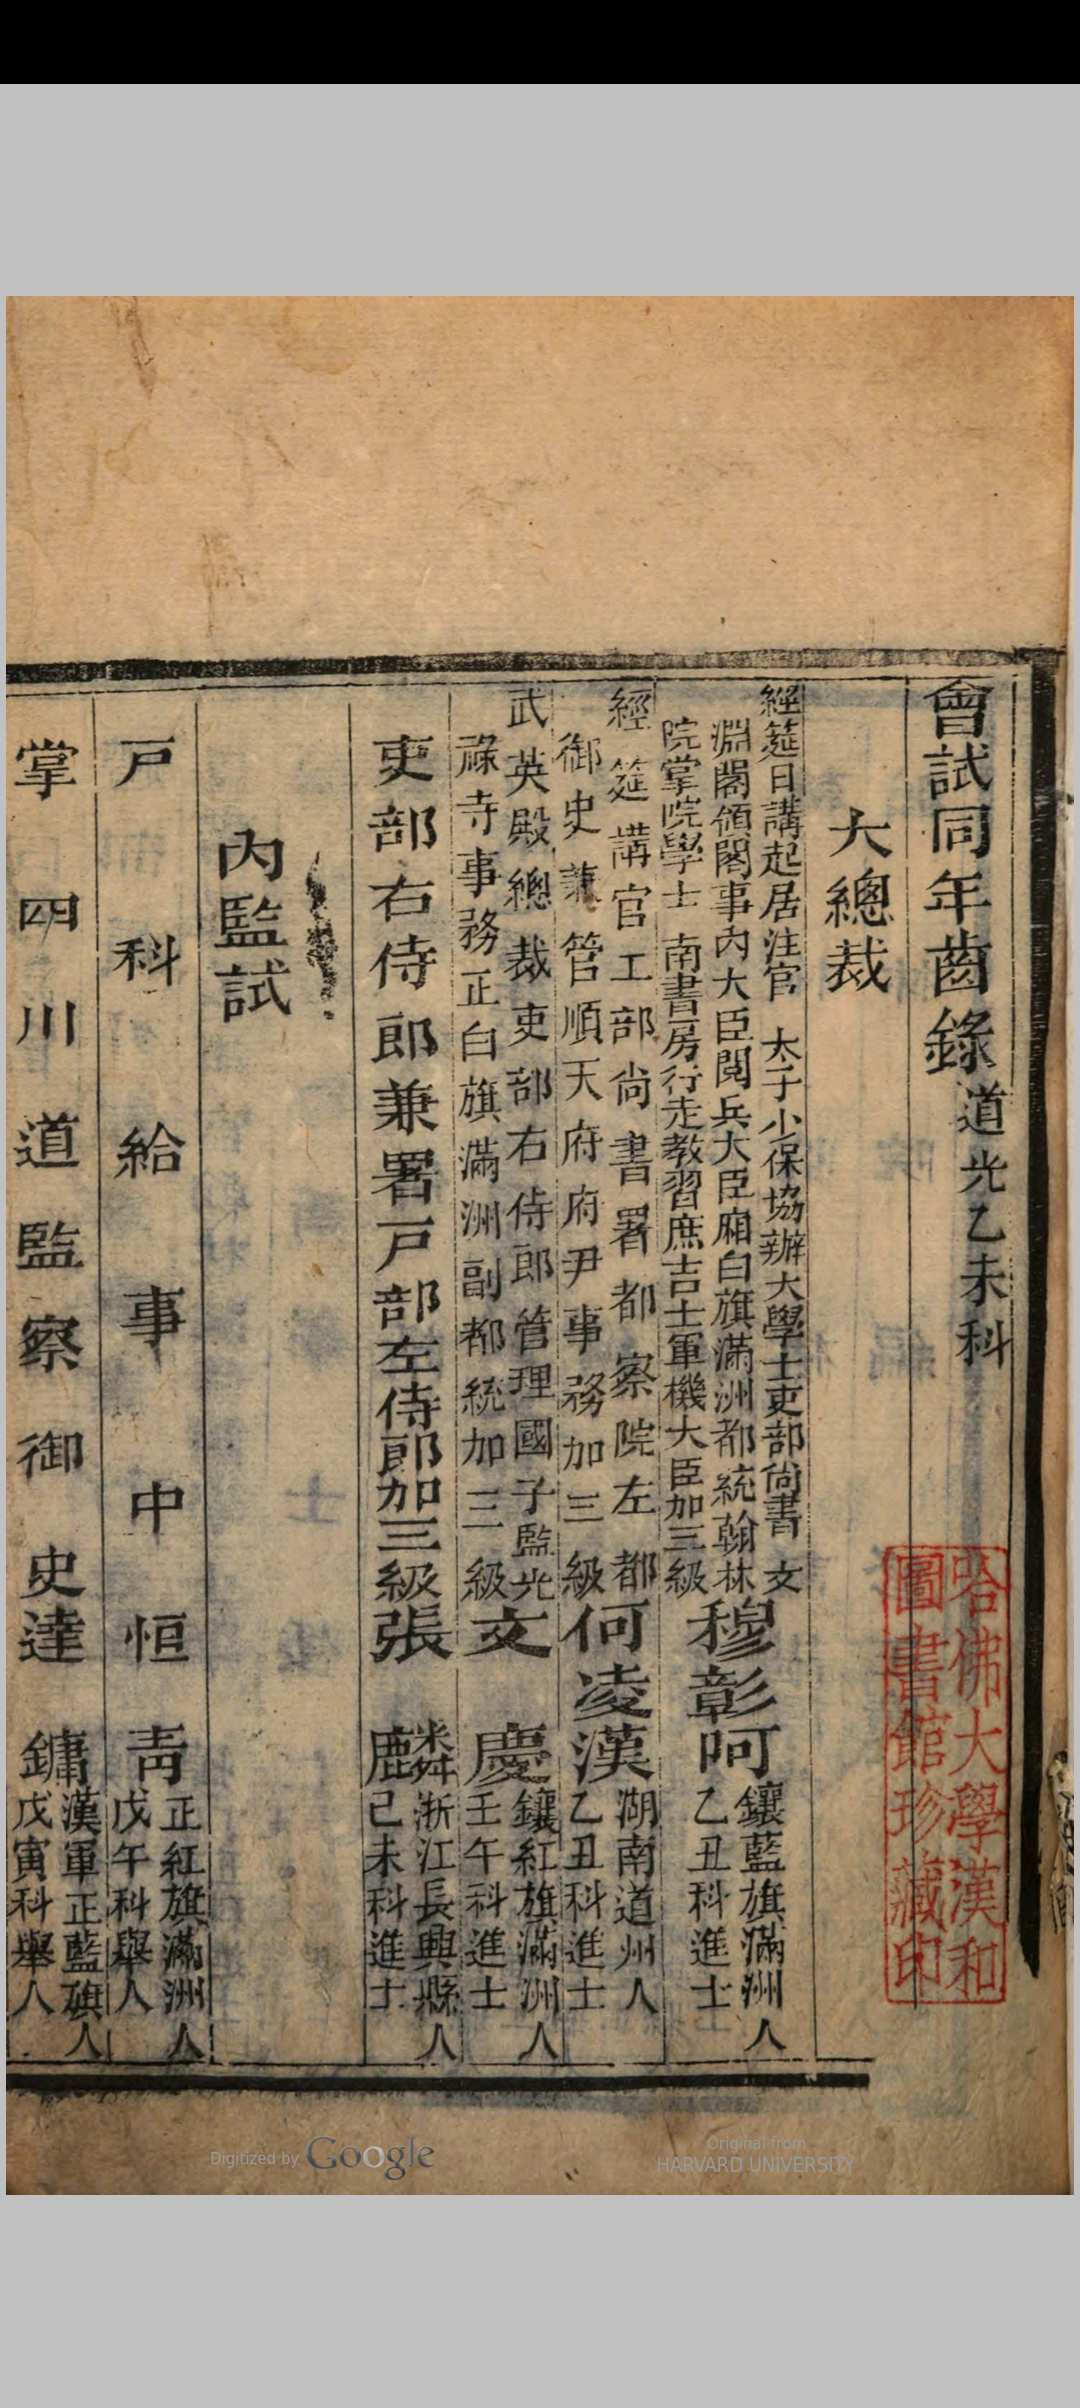 會試同年齒錄道光乙未科
大總裁
經筵日講起居注官 太子少保協辦大學士吏部尚書 文
淵閣領閣事內大臣閱兵大臣廂白旗滿洲都統翰林
院掌院學士 南書房行走教習庶吉士軍機大臣加三級
穆彰阿
鑲藍旗滿洲人
乙丑科進士
經筵講官工部尚書署都察院左都
御史兼管順天府府尹事務加三級
何凌漢
湖南道州人
乙丑科進士
武英殿總裁吏部右侍郎管理國子監光
祿寺事務正白旗滿洲副都統加三級
文慶
鑲紅旗滿洲人
壬午科進士
吏部右侍郎兼署戶部左侍郎加三級張麟
浙江長興縣人
己未科進士
內監試
戶科給事中恒青
正紅旗滿洲人
戊午科舉人
掌四川道監察御史達鏞
漢軍正藍旗人
戊寅科舉人
哈佛大學漢和
圖書館珍藏印
Digitized by Google
Original from
HARVARD UNIVERSITY